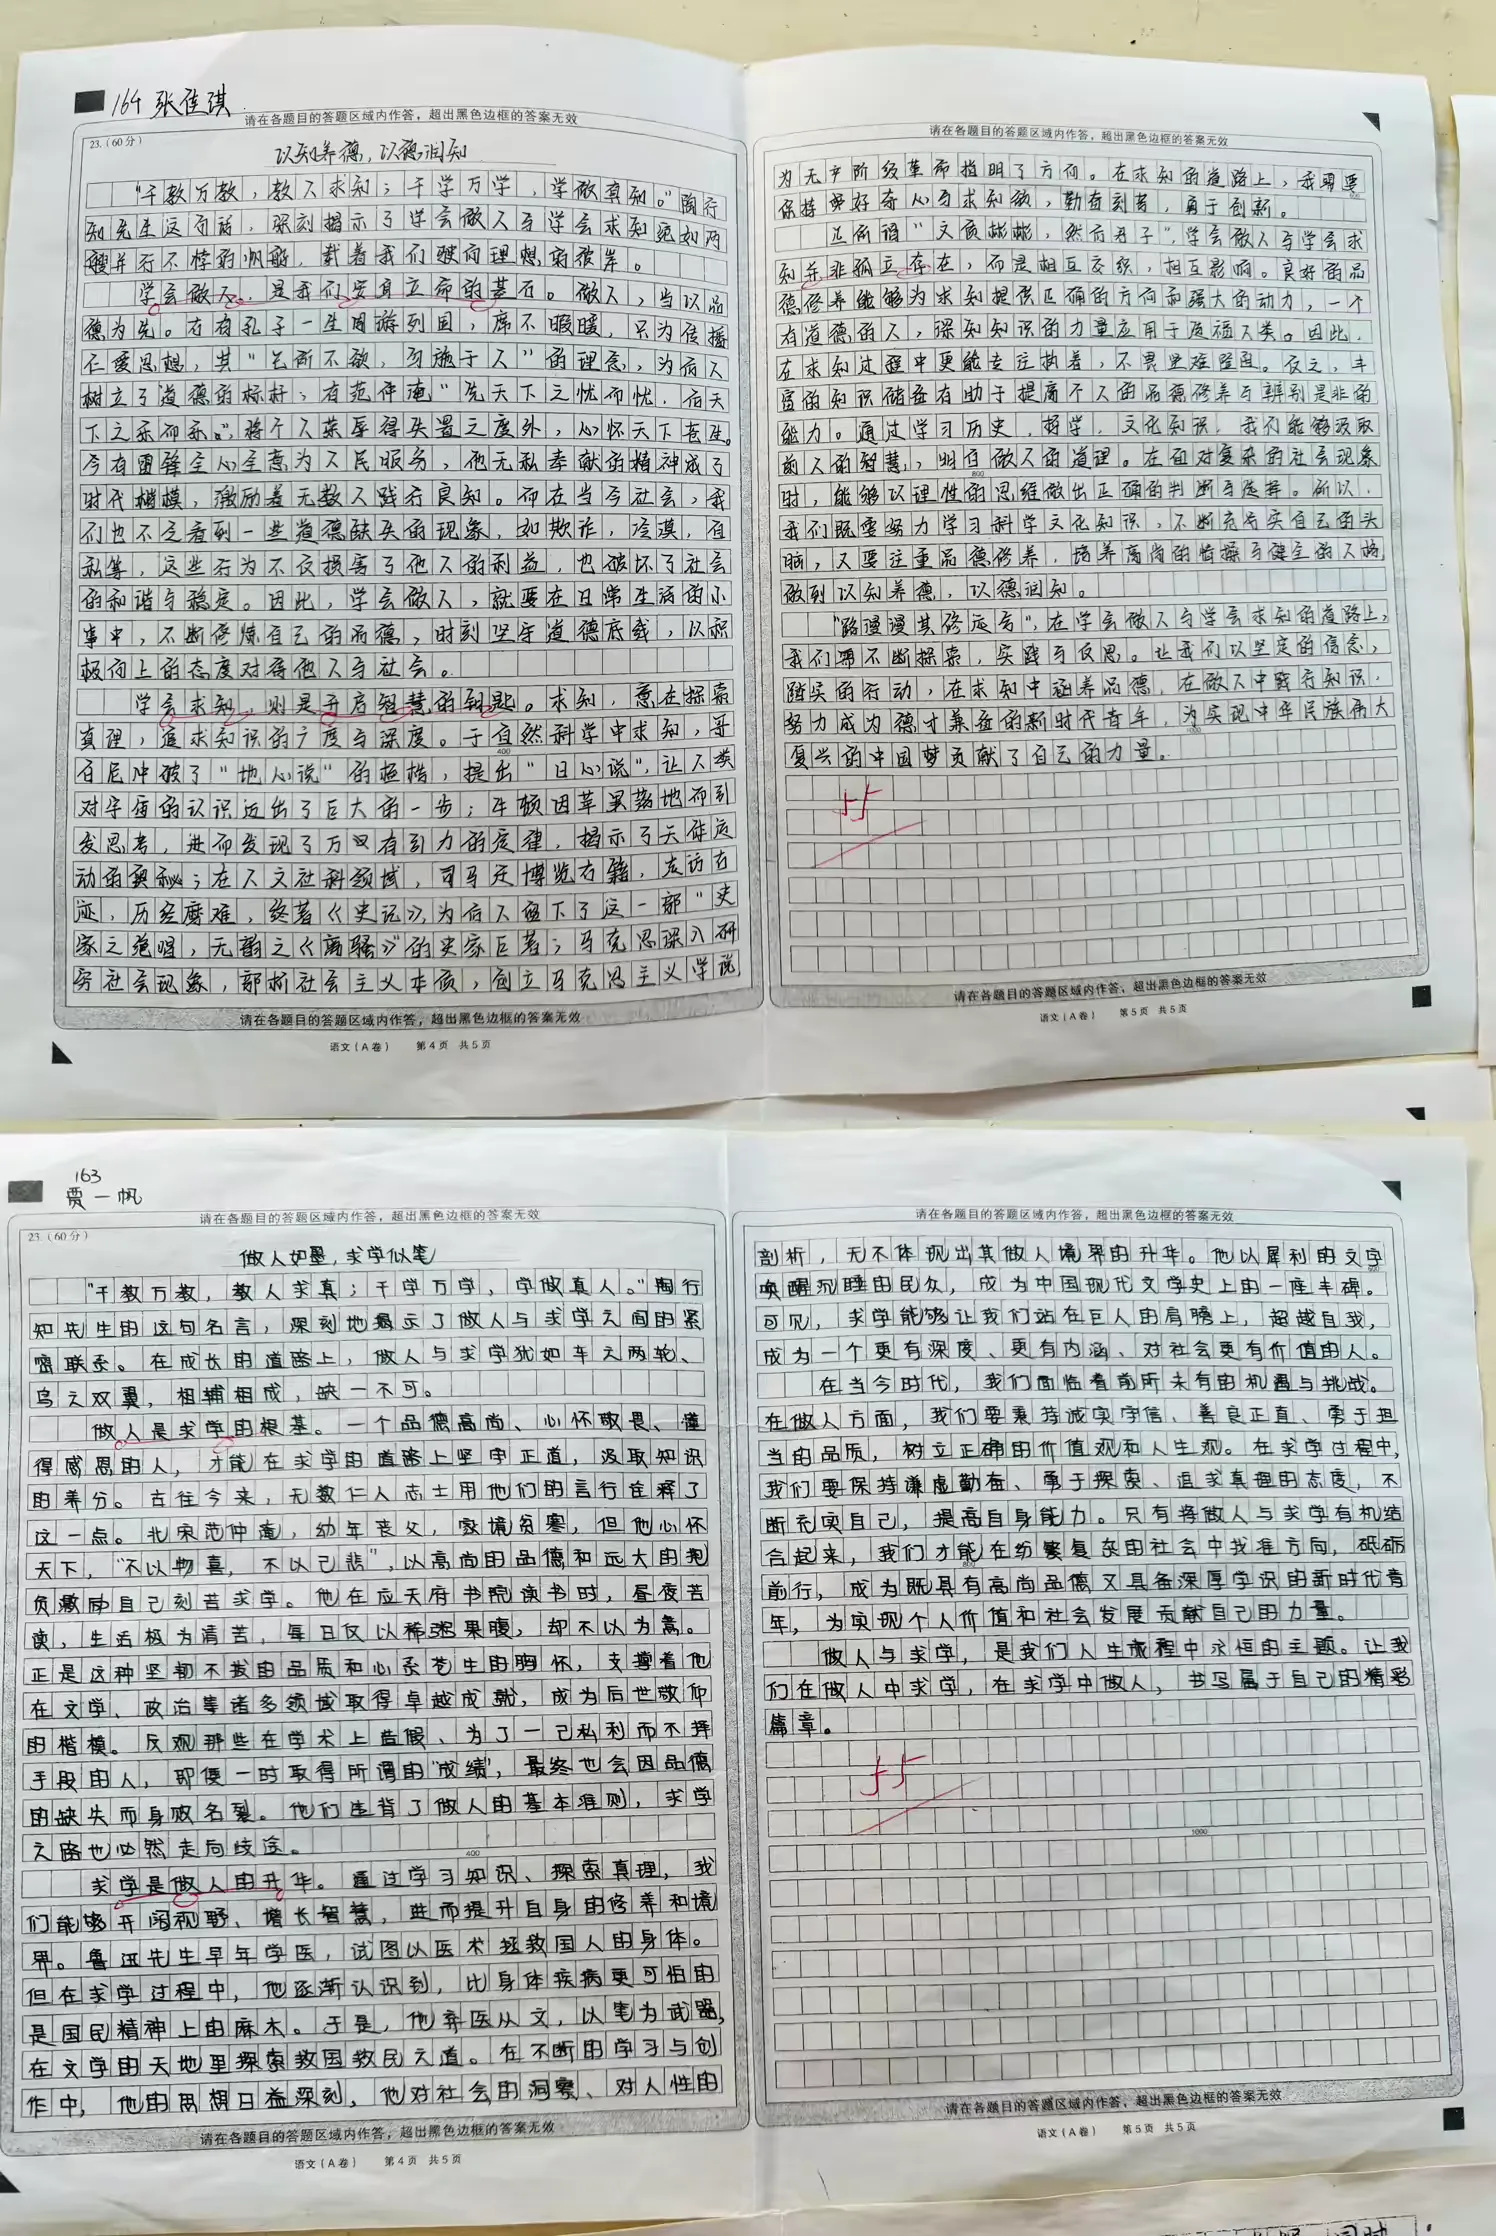 164 张佳琪
请在各题目的答题区域内作答，超出黑色边框的答案无效
23.(60分)
以知养德，以德润知
“千教万教，教人求知；千学万学，学做真知。”陶行
知先生这句话，深刻揭示了学会做人与学会求知宛如两
艘并行不悖的帆船，载着我们驶向理想的彼岸。
学会做人，是我们安身立命的基石。做人，当以品
德为先。古有孔子一生周游列国，席不暇暖，只为传播
仁爱思想，其“己所不欲，勿施于人”的理念，为后人
树立了道德的标杆；有范仲淹“先天下之忧而忧，后天
下之乐而乐。”，将个人荣辱得失置之度外，心怀天下苍生。
今有雷锋全心全意为人民服务，他无私奉献的精神成了
时代楷模，激励着无数人践行良知。而在当今社会，我
们也不乏看到一些道德缺失的现象，如欺诈，冷漠，自
私等，这些行为不仅损害了他人的利益，也破坏了社会
的和谐与稳定。因此，学会做人，就要在日常生活的小
事中，不断修炼自己的品德，时刻坚守道德底线，以积
极向上的态度对待他人与社会。
学会求知，则是开启智慧的钥匙。求知，意在探索
真理，追求知识的广度与深度。于自然科学中求知，哥
400
白尼冲破了“地心说”的桎梏，提出“日心说”，让人类
对宇宙的认识迈出了巨大的一步；牛顿因苹果落地而引
发思考，进而发现了万有引力的定律，揭示了天体运
动的奥秘；在人文社科领域，司马迁博览古籍，走访古
迹，历经磨难，终著《史记》，为后人留下了这一部“史
家之绝唱，无韵之《离骚》”的史家巨著；马克思深入研
究社会现象，剖析社会主义本质，创立马克思主义学说
请在各题目的答题区域内作答，超出黑色边框的答案无效
语文(A卷) 第4页 共5页
请在各题目的答题区域内作答，超出黑色边框的答案无效
为无产阶级革命指明了方向。在求知的道路上，我们要
保持好奇心与求知欲，勤奋刻苦，勇于创新。
正所谓“文质彬彬，然后君子”，学会做人与学会求
知并非孤立存在，而是相互交织，相互影响。良好的品
德修养能够为求知提供正确的方向和强大的动力，一个
有道德的人，深知知识的力量应用于造福人类。因此，
在求知过程中更能专注执着，不畏艰难险阻。反之，丰
富的知识储备有助于提高个人的品德修养与辨别是非的
能力。通过学习历史，哲学，文化知识，我们能够汲取
前人的智慧，明白做人的道理。在面对复杂的社会现象
800
时，能够以理性的思维做出正确的判断与选择。所以，
我们既要努力学习科学文化知识，不断充实自己的头
脑，又要注重品德修养，培养高尚的情操与健全的人格，
做到以知养德，以德润知。
“路漫漫其修远兮”，在学会做人与学会求知的道路上，
我们要不断探索，实践与反思。让我们以坚定的信念，
踏实的行动，在求知中涵养品德，在做人中践行知识，
努力成为德才兼备的新时代青年，为实现中华民族伟大
1000
复兴的中国梦贡献了自己的力量。
请在各题目的答题区域内作答，超出黑色边框的答案无效
语文(A卷) 第5页 共5页
163
贾一帆
请在各题目的答题区域内作答，超出黑色边框的答案无效
23.(60分)
做人如墨，求学似笔
“千教万教，教人求真；千学万学，学做真人。”陶行
知先生的这句名言，深刻地揭示了做人与求学之间的紧
密联系。在成长的道路上，做人与求学犹如车之两轮、
鸟之双翼，相辅相成，缺一不可。
做人是求学的根基。一个品德高尚、心怀敬畏、懂
得感恩的人，才能在求学的道路上坚守正道，汲取知识
的养分。古往今来，无数仁人志士用他们的言行诠释了
这一点。北宋范仲淹，幼年丧父，家境贫寒，但他心怀
天下，“不以物喜，不以己悲”，以高尚的品德和远大的抱
负激励自己刻苦求学。他在应天府书院读书时，昼夜苦
读，生活极为清苦，每日仅以稀粥果腹，却不以为意。
正是这种坚韧不拔的品质和心系苍生的胸怀，支撑着他
在文学、政治等诸多领域取得卓越成就，成为后世敬仰
的楷模。反观那些在学术上造假、为了一己私利而不择
手段的人，即便一时取得所谓的“成绩”，最终也会因品德
的缺失而身败名裂。他们违背了做人的基本准则，求学
之路也必然走向歧途。
400
求学是做人的升华。通过学习知识、探索真理，我
们能够开阔视野、增长智慧，进而提升自身的修养和境
界。鲁迅先生早年学医，试图以医术拯救国人的身体。
但在求学过程中，他逐渐认识到，比身体疾病更可怕的
是国民精神上的麻木。于是，他弃医从文，以笔为武器，
在文学的天地里探索救国救民之道。在不断的学习与创
作中，他的思想日益深刻，他对社会的洞察、对人性的
请在各题目的答题区域内作答，超出黑色边框的答案无效
语文(A卷) 第4页 共5页
请在各题目的答题区域内作答，超出黑色边框的答案无效
剖析，无不体现出其做人境界的升华。他以犀利的文字
唤醒沉睡的民众，成为中国现代文学史上的一座丰碑。
可见，求学能够让我们站在巨人的肩膀上，超越自我，
成为一个更有深度、更有内涵、对社会更有价值的人。
在当今时代，我们面临着前所未有的机遇与挑战。
在做人方面，我们要秉持诚实守信、善良正直、勇于担
当的品质，树立正确的价值观和人生观。在求学过程中，
我们要保持谦虚勤奋、勇于探索、追求真理的态度，不
断充实自己，提高自身能力。只有将做人与求学有机结
合起来，我们才能在纷繁复杂的社会中找准方向，砥砺
800
前行，成为既具有高尚品德又具备深厚学识的新时代青
年，为实现个人价值和社会发展贡献自己的力量。
做人与求学，是我们人生旅程中永恒的主题。让我
们在做人中求学，在求学中做人，书写属于自己的精彩
篇章。
1000
请在各题目的答题区域内作答，超出黑色边框的答案无效
语文(A卷) 第5页 共5页